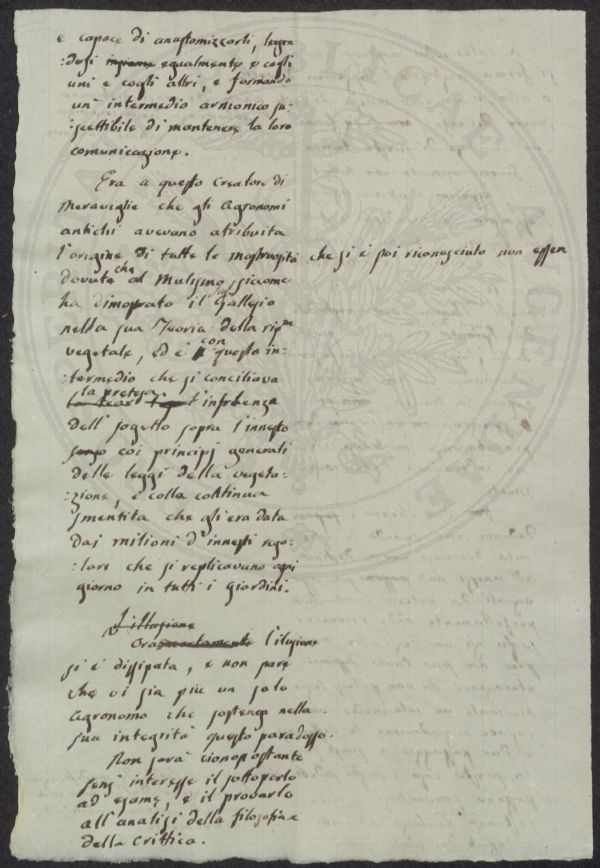 e capace di anastomizzarli, legan
:dosi insieme equalmente e cogli
uni e cogli altri, e formando
un' intermedio armonico su-
:scettibile di mantenere la loro
comunicazione.
Era a questo Creatore di
Meraviglie che gli Agronomi
antichi avevano atribuita
l'origine di tutte le mostruosità che si è poi riconosciuto non essere
dovute che al Mulismo, siccome
ha dimostrato il Gallesio
nella sua Teoria della rip.ne
vegetale, ed è con questo in-
:termedio che si conciliava
la pretesa
l'influenza
dell' sogetto sopra l'innesto
coi principj generali
delle leggi della vegeta-
:zione, e colla continua
smentita che gli era data
dai milioni d'innesti rego-
:lari che si replicavano ogni
giorno in tutti i Giardini.
L'illusione
Ora l'ilusione
si è dissipata, e non pare
che vi sia più un solo
Agronomo che sostenga nella
sua integrità questo paradosso.
Non sarà cionopostante
senz' interesse il sottoporlo
ad esame, e il provarlo
all'analisi della filosofia e
della Crittica.